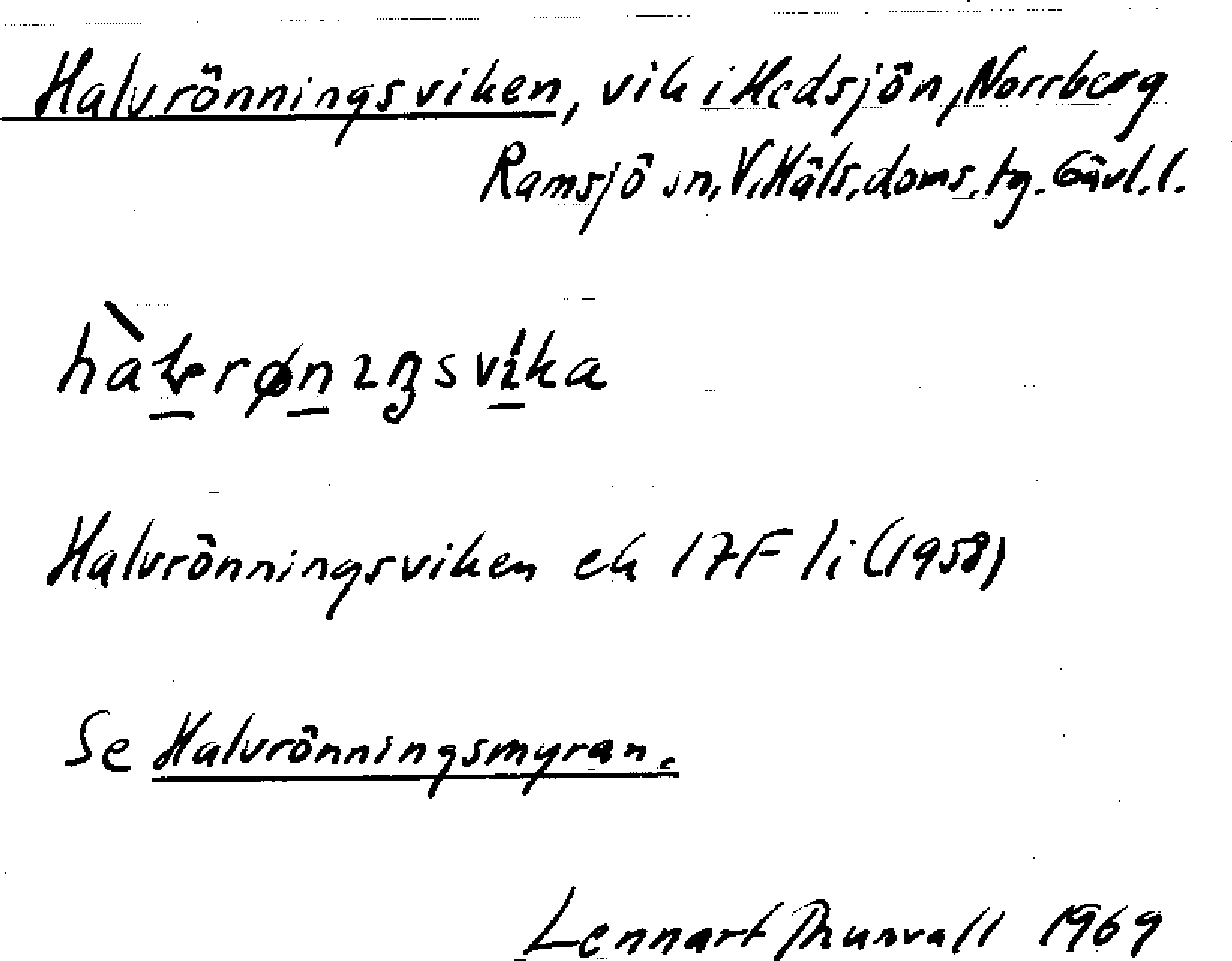 Halvrönningsviken, vik i Hedsjön, Norrberg
Ramsjö sn, V. Häls. doms. tg. Gävl. l.
Halvrönningsviken ek 17F 1i (1958)
Se Halvrönningsmyran.
Lennart Thunvall 1969